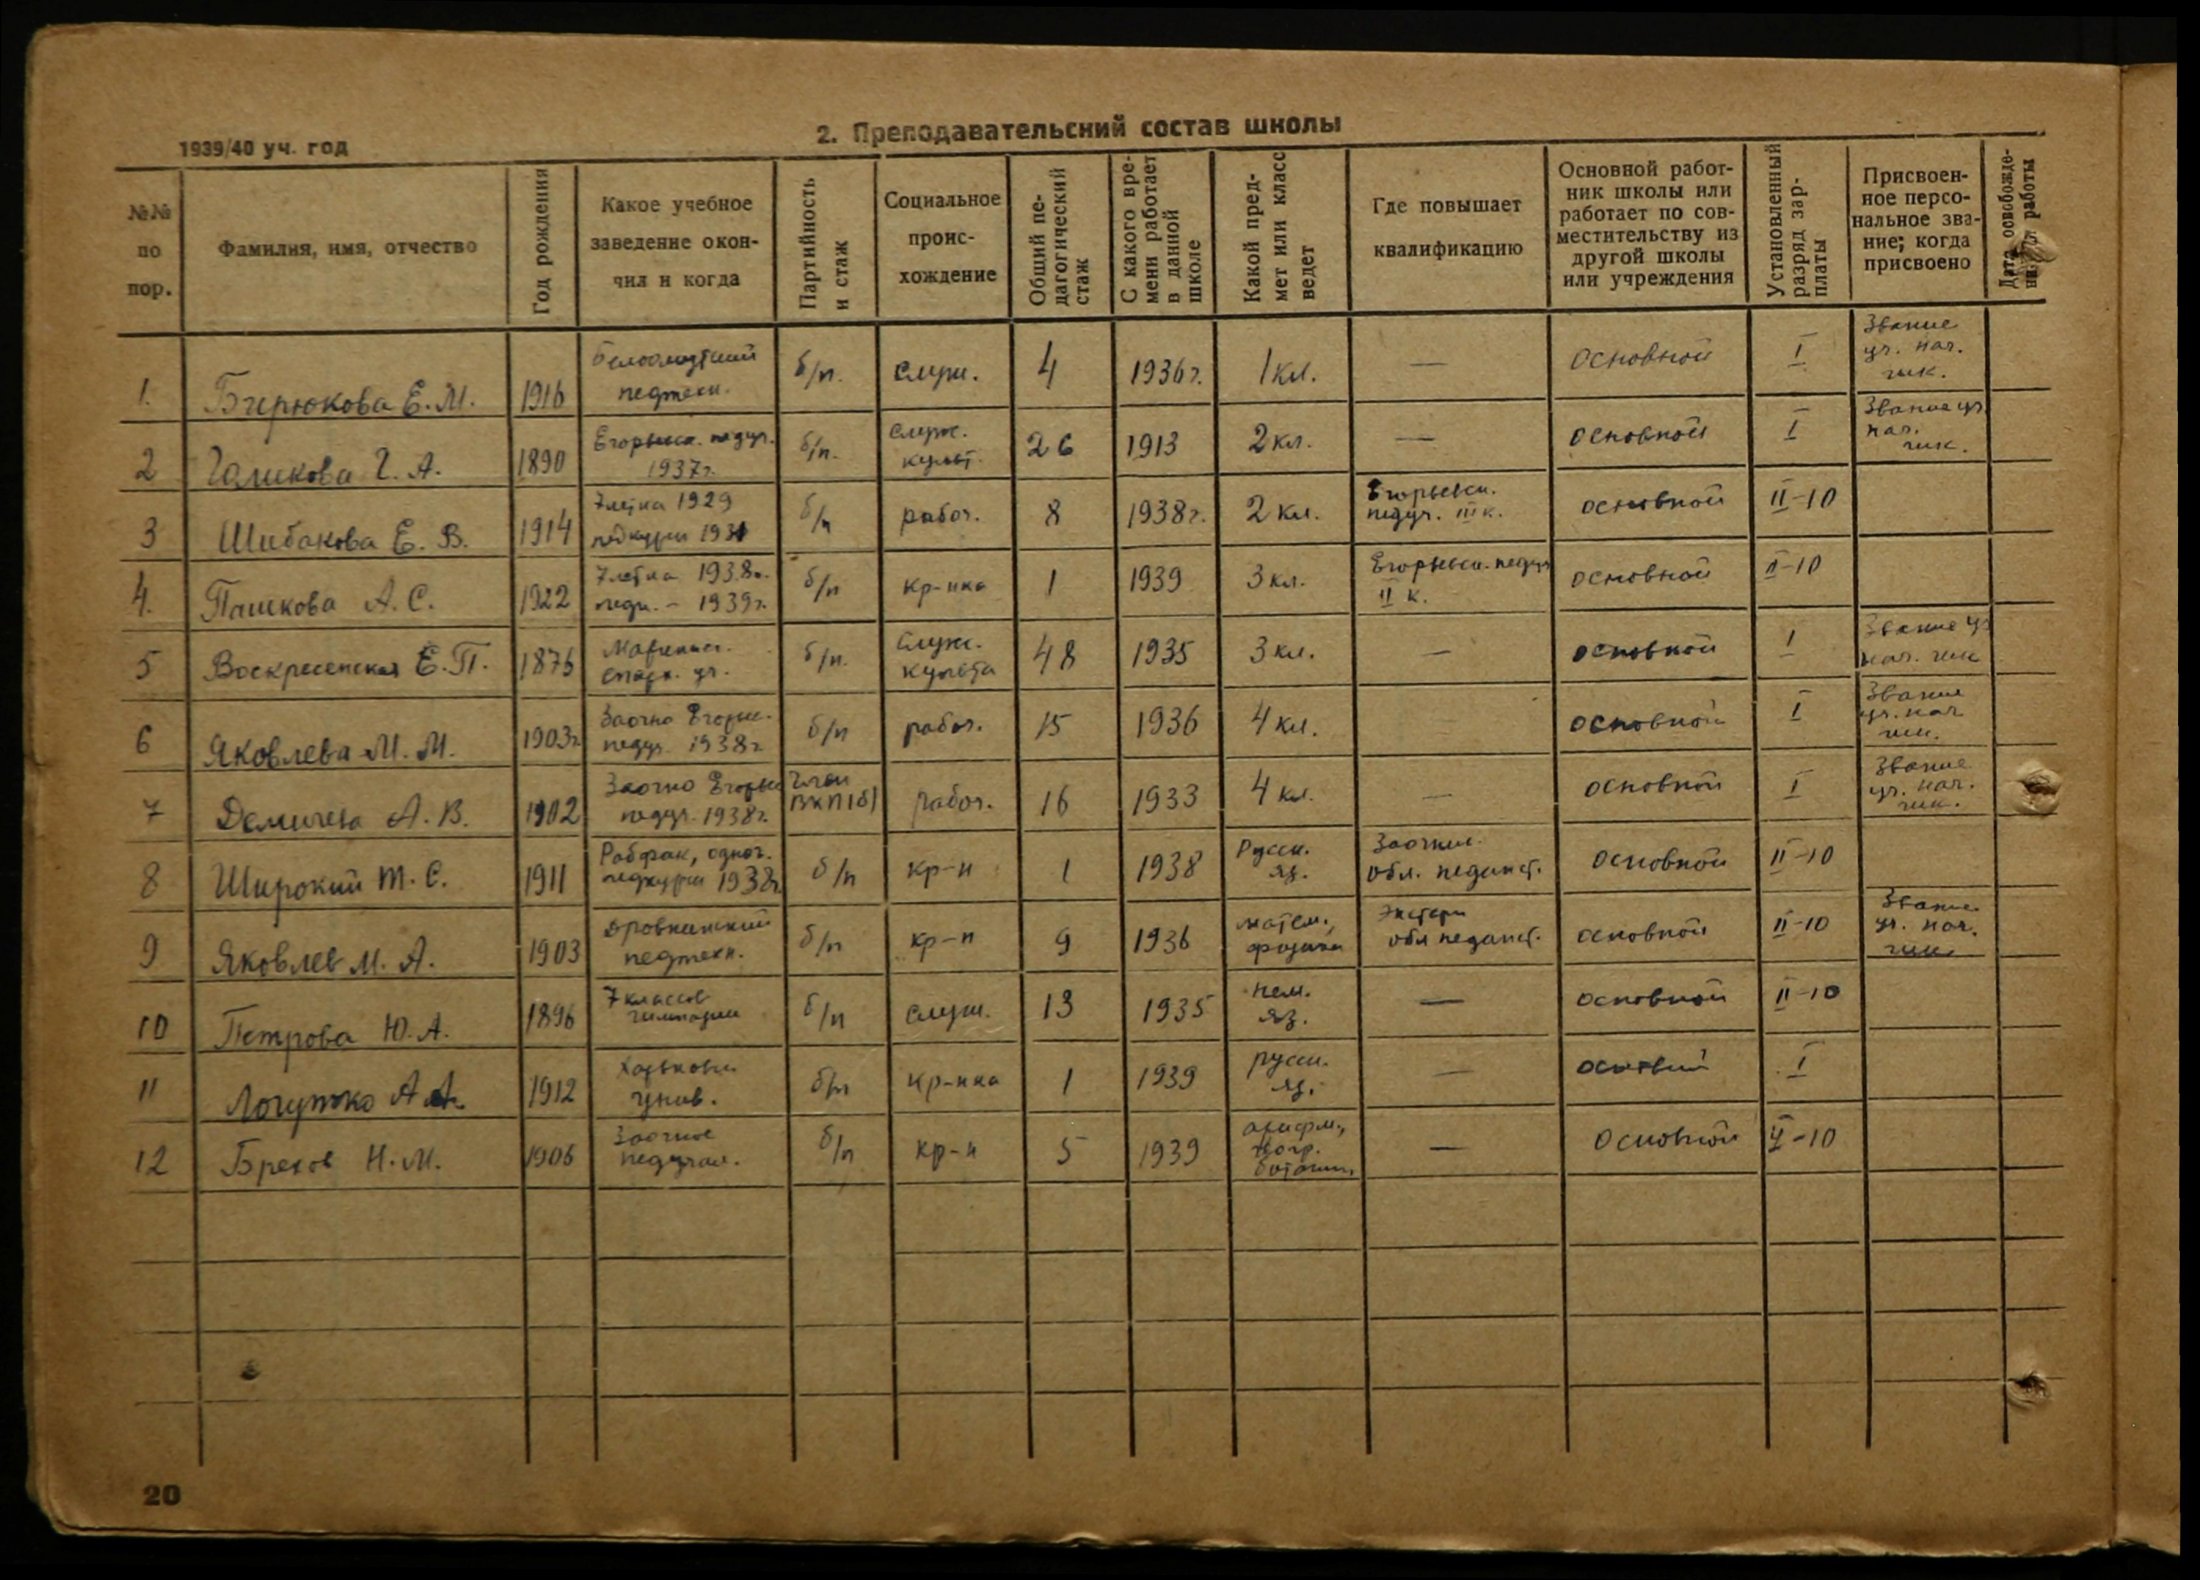 1939/40 уч. год
2. Преподавательский состав школы
№№ по пор.
Фамилия, имя, отчество
Год рождения
Какое учебное заведение окон-
чил и когда
Партийность и стаж
Социальное проис-
хождение
Общий пе-
дагогический стаж
С какого вре-
мени работает в данной школе
Какой пред-
мет или класс ведет
Где повышает квалификацию
Основной работ-
ник школы или
работает по сов-
местительству из
другой школы
или учреждения
Установленный разряд зар-
платы
Присвоен-
ное персо-
нальное зва-
ние; когда
присвоено
Дата освобожде-
работы
1. Бирюкова Е. М. 1916 педтехн. б/п. служ. 4 1936 г. 1 кл. — основной I Звание уч. нач. шк.
2 Голикова А. 1890 Егорьевск. педуч. 1937 г. б/п. служ. культ. 26 1913 2 кл. — основной I Звание уч. нач. шк.
3 Шибакова Е. В. 1914 7летка 1929 педкурсы б/п рабоч. 8 1938 г. 2 кл. Егорьевск. педуч. III к. основной II-10
4. Пашкова А. С. 1922 7летка 1938 г. 1939 г. б/п кр-нка 1 1939 3 кл. Егорьевск. педуч II к. основной II-10
5 Воскресенская Е. П. Мариинск. епарх. уч. б/п. служ. культа 48 1935 3 кл. — основной I Звание уч нач. шк
6 Яковлева М. М. 1903 г Заочно Егорьев. педуч. 1938 г. б/п рабоч. 15 1936 4 кл. основной I Звание уч. нач шк.
7 Демичева А. В. 1902 Заочно Егорьев педуч. 1938 г. Член ВКП(б) рабоч. 16 1933 4 кл. — основной I Звание уч. нач. шк.
8 Широкий Т. С. 1911 Рабфак, одног. педкурсы 1938 г. б/п кр-н 1 1938 Русск. яз. Заочник обл. пединст. основной II-10
9 Яковлев М. А. 1903 педтехн. б/п кр-н 9 1936 матем., физика Экстерн обл пединст. основной II-10 Звание уч. нач. шк.
10 Петрова Ю. А. 1896 7 классов гимназии б/п служ. 13 1935 нем. яз. — основной II-10
11 Логутко А. 1912 Харьковск унив. б/п кр-нка 1 1939 русск. яз. — I
12 Брехов Н. М. 1906 Заочное педучил. б/п кр-н 5 1939 арифм., геогр. ботаник. — основной II-10
20